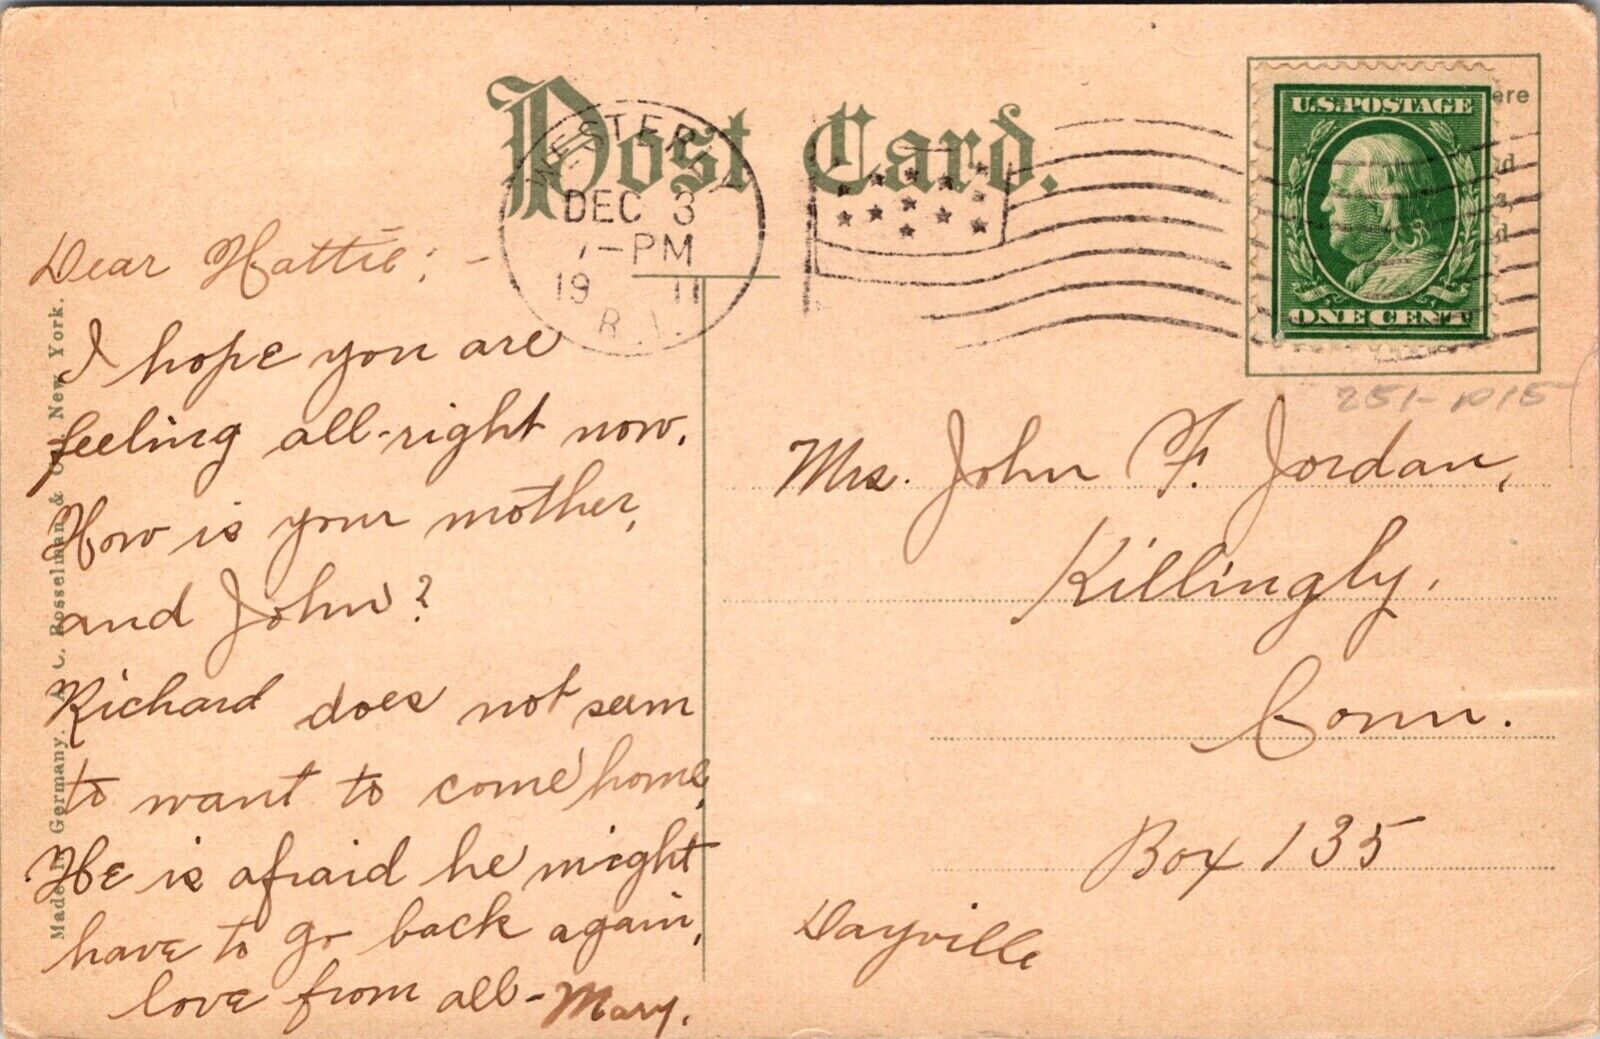 Post Card.
WESTERLY
DEC 3
7-PM
19 11
R.I.
U.S. POSTAGE
ONE CENT
ere
251-1015
Dear Hattie; -
I hope you are
feeling all-right now.
How is your mother,
and John?
Richard does not seem
to want to come home,
He is afraid he might
have to go back again,
love from all - Mary.
Mrs. John F. Jordan,
Killingly,
Conn.
Box 135
Dayville
Made in Germany. A. C. Bosselman & Co., New York.